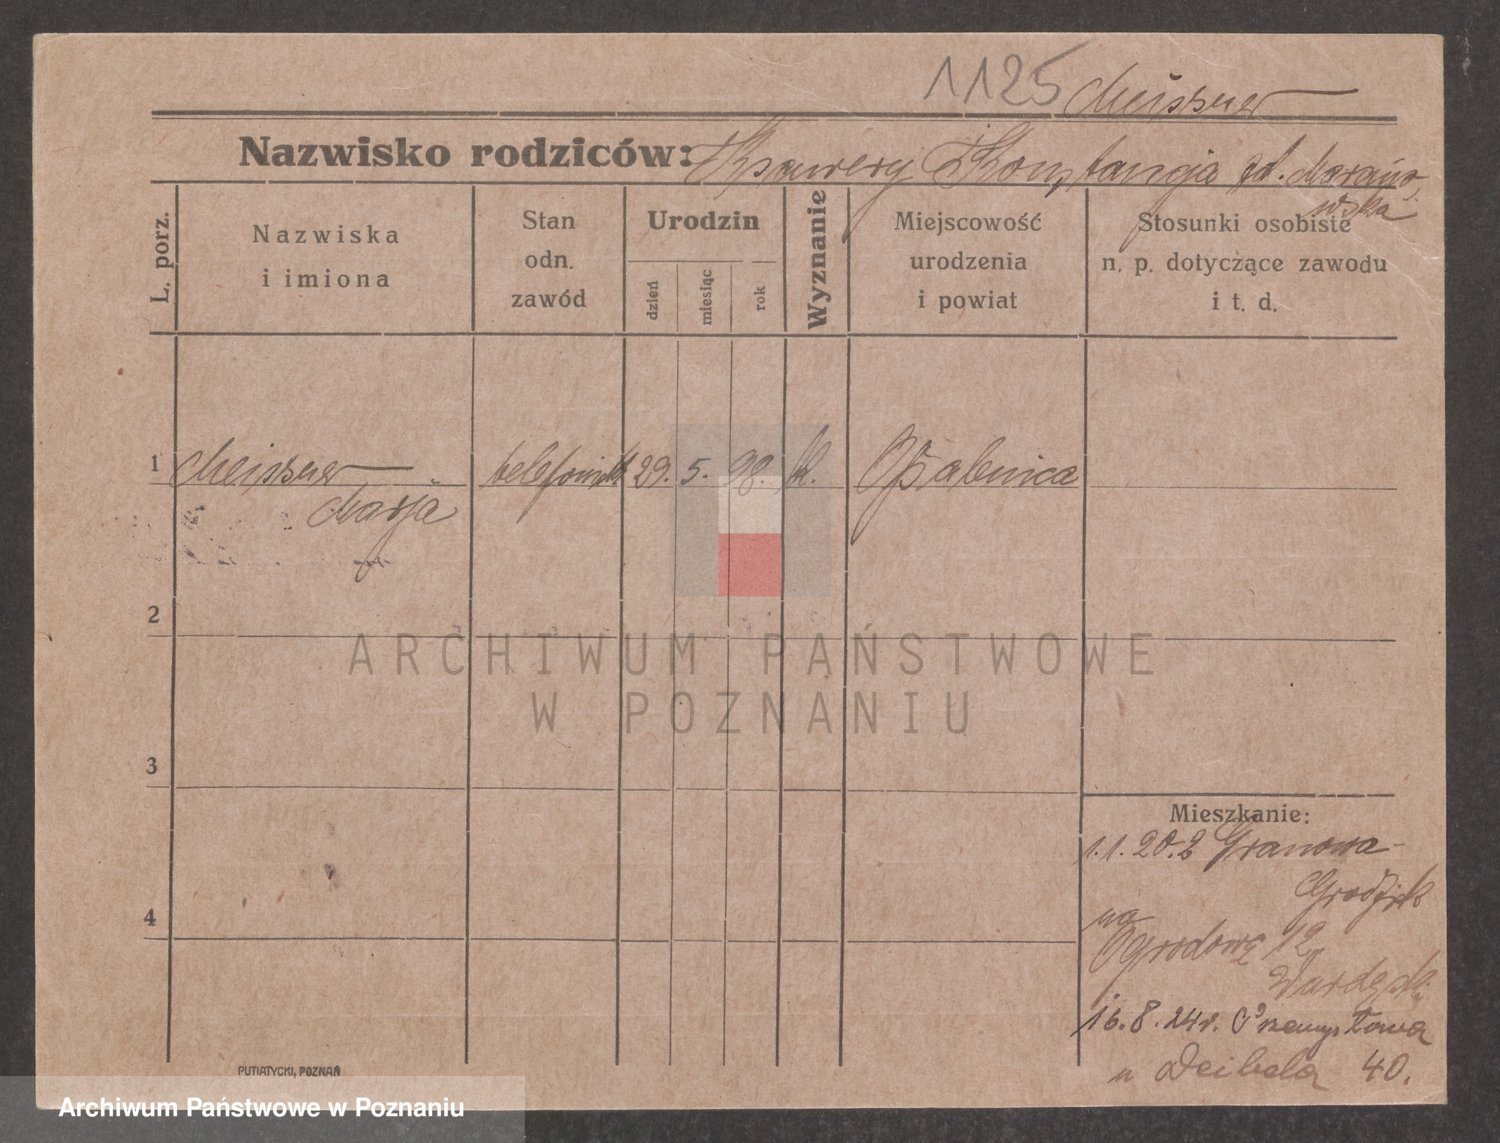 1125 Meissner
Nazwisko rodziców: Ksawery Konstancja zd.
wska
L. porz.
Nazwiska
i imiona
Stan
odn.
zawód
Urodzin
dzień
miesiąc
rok
Wyznanie
Miejscowość
urodzenia
i powiat
Stosunki osobiste
n. p. dotyczące zawodu
i t. d.
1 Meissner telefonist. 29. 5. 98. k. Opalenica
Marja
2
3
4
ARCHIWUM PAŃSTWOWE
W POZNANIU
Mieszkanie:
1.1.20. z Granowa-
Grodzisk
na
Ogrodowę 12
16.8.24r. Przemysłowa
u Deibela 40.
PUTIATYCKI, POZNAŃ
Archiwum Państwowe w Poznaniu